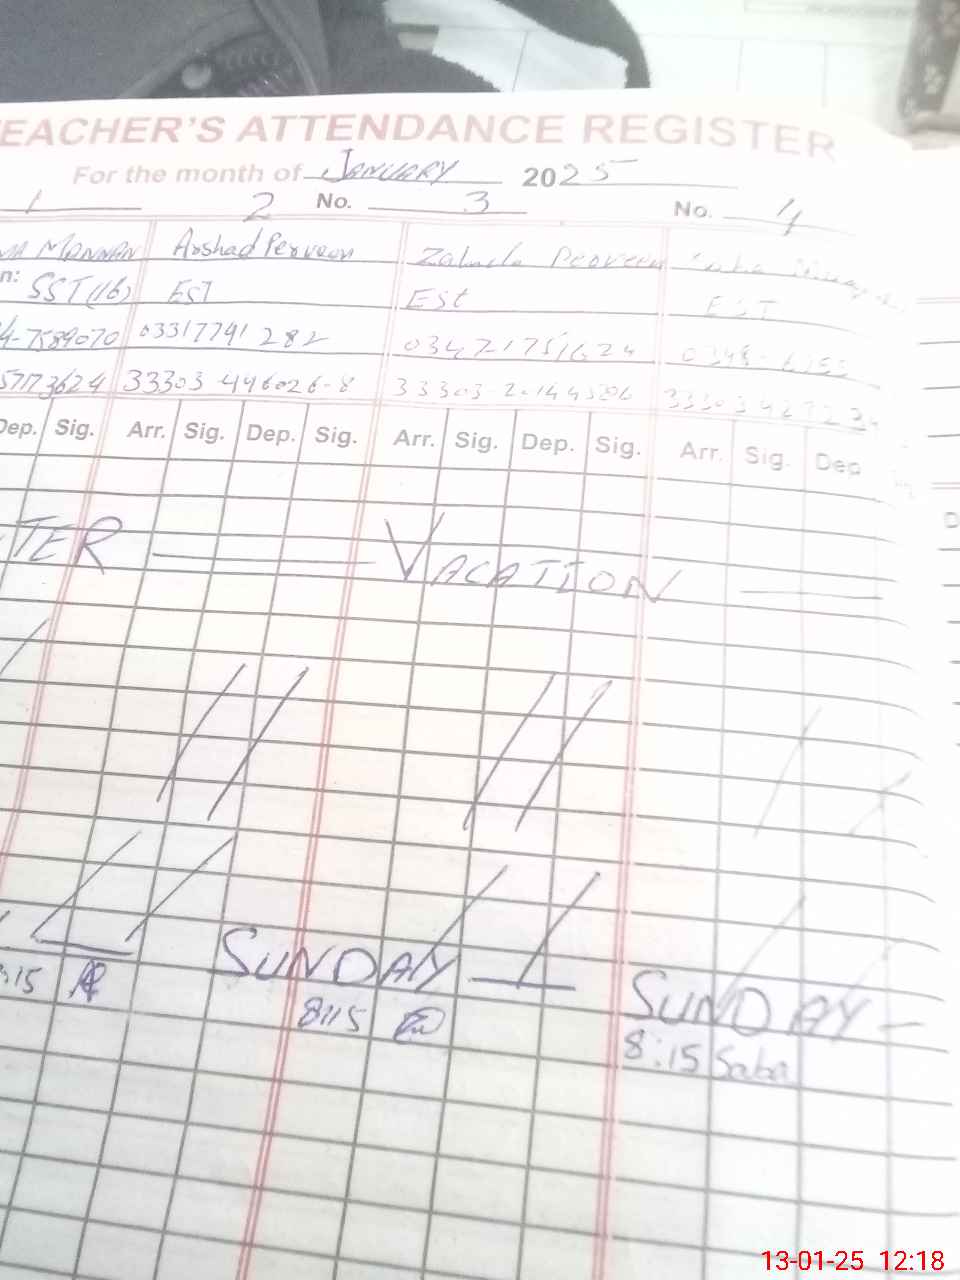 TEACHER'S ATTENDANCE REGISTER
For the month of January 2025
1 2 No. 3 No. 4
MANNAN Arshad Perveen Zahida Perveen
SST (16) EST Est EST
4-7589070 03317741282 0347-1751624
57173624 33303-446026-8
Dep. Sig. Arr. Sig. Dep. Sig. Arr. Sig. Dep. Sig. Arr. Sig. Dep
TER VACATION
SUNDAY SUNDAY
8:15 8:15 8:15 Saba
13-01-25 12:18